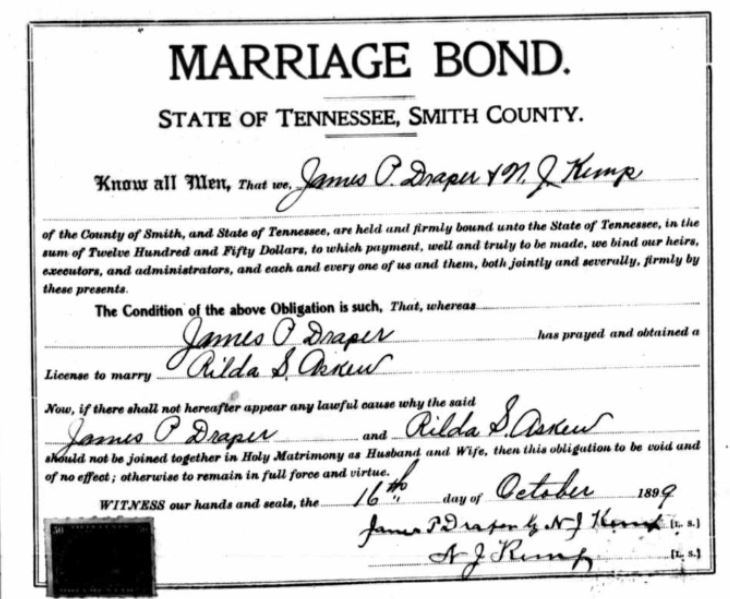 MARRIAGE BOND.
STATE OF TENNESSEE, SMITH COUNTY.
Know all Men, That we, James P. Draper & N. J. Kemp
of the County of Smith, and State of Tennessee, are held and firmly bound unto the State of Tennessee, in the
sum of Twelve Hundred and Fifty Dollars, to which payment, well and truly to be made, we bind our heirs,
executors, and administrators, and each and every one of us and them, both jointly and severally, firmly by
these presents.
The Condition of the above Obligation is such, That, whereas
James P Draper has prayed and obtained a
License to marry Rilda S. Askew
Now, if there shall not hereafter appear any lawful cause why the said
James P Draper and Rilda S. Askew
should not be joined together in Holy Matrimony as Husband and Wife, then this obligation to be void and
of no effect; otherwise to remain in full force and virtue.
WITNESS our hands and seals, the 16th day of October 1899
James P Draper by N J Kemp [L. S.]
N J Kemp [L. S.]
50